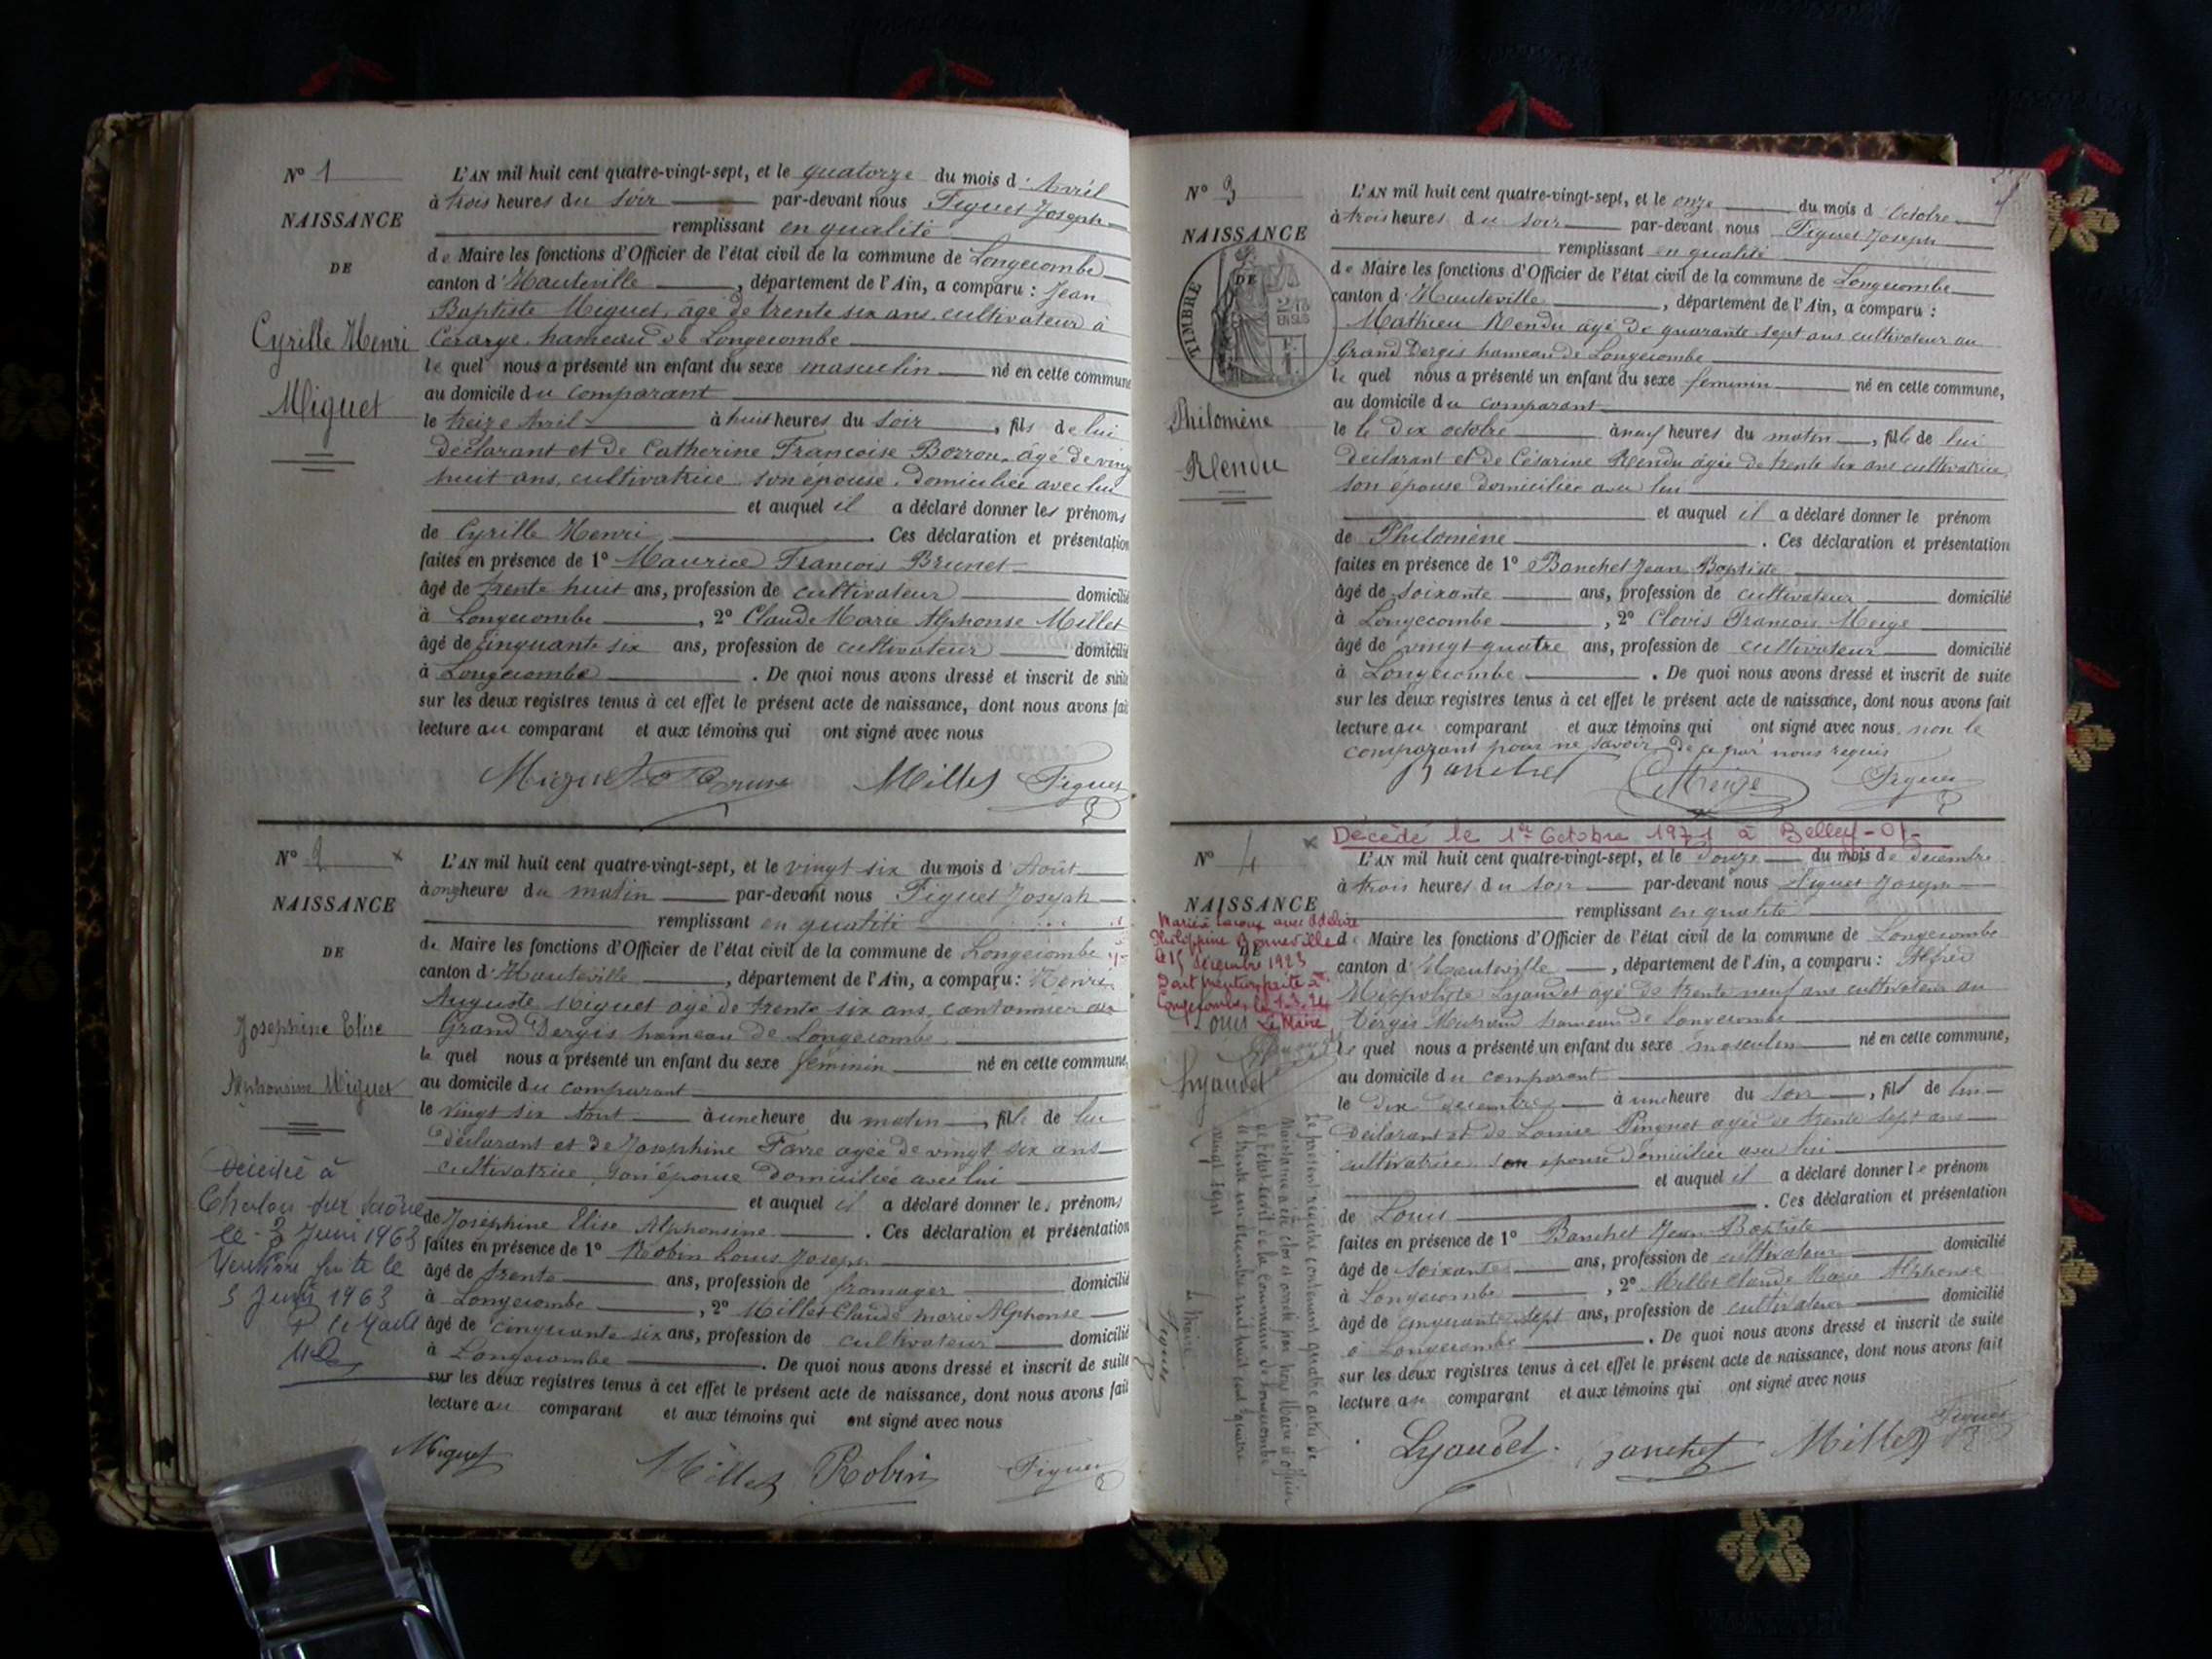 N° 1
NAISSANCE
DE
Cyrille Henri
Miguet
L'AN mil huit cent quatre-vingt-sept, et le quatorze du mois d'Avril
à trois heures du soir par-devant nous Figuet Joseph
remplissant en qualité
de Maire les fonctions d'Officier de l'état civil de la commune de Longecombe
canton d'Hauteville, département de l'Ain, a comparu : Jean
Baptiste Miguet, âgé de trente six ans, cultivateur à
hameau de Longecombe
le quel nous a présenté un enfant du sexe masculin né en cette commune
au domicile du comparant
le treize Avril à huit heures du soir, fils de lui
déclarant et de Catherine Françoise Borron, âgé de vingt
huit ans, cultivatrice, son épouse, domiciliée avec lui
et auquel il a déclaré donner les prénoms
de Cyrille Henri. Ces déclaration et présentation
faites en présence de 1° Maurice François Brunet
âgé de trente huit ans, profession de cultivateur domicilié
à Longecombe, 2° Claude Marie Alphonse Millet
âgé de cinquante six ans, profession de cultivateur domicilié
à Longecombe. De quoi nous avons dressé et inscrit de suite
sur les deux registres tenus à cet effet le présent acte de naissance, dont nous avons fait
lecture au comparant et aux témoins qui ont signé avec nous
Miguet Brunet Millet Figuet
N° 2 x
NAISSANCE
DE
Josephine Elise
Alphonsine Miguet
Décédée à
Chalon sur Saône
le 3 Juin 1963
Mention faite le
5 Juin 1963
L'AN mil huit cent quatre-vingt-sept, et le vingt six du mois d'Août
à onze heures du matin par-devant nous Figuet Joseph
remplissant en qualité
de Maire les fonctions d'Officier de l'état civil de la commune de Longecombe
canton d'Hauteville, département de l'Ain, a comparu : Henri
Auguste Miguet agé de trente six ans, cantonnier au
Grand Dergis hameau de Longecombe
le quel nous a présenté un enfant du sexe féminin né en cette commune,
au domicile du comparant
le vingt six Aout à une heure du matin, fille de lui
déclarant et de Josephine Favre agée de vingt six ans
cultivatrice, son épouse domiciliée avec lui
et auquel il a déclaré donner les prénoms
de Joséphine Elise Alphonsine. Ces déclaration et présentation
faites en présence de 1° Robin Louis Joseph
âgé de trente ans, profession de fromager domicilié
à Longecombe, 2° Millet Claude marie Alphonse
âgé de cinquante six ans, profession de cultivateur domicilié
à Longecombe. De quoi nous avons dressé et inscrit de suite
sur les deux registres tenus à cet effet le présent acte de naissance, dont nous avons fait
lecture au comparant et aux témoins qui ont signé avec nous
Miguet Millet Robin Figuet
N° 3
NAISSANCE
DE
TIMBRE
Philomène
Rendu
L'AN mil huit cent quatre-vingt-sept, et le onze du mois d'Octobre
à trois heures du soir par-devant nous Figuet Joseph
remplissant en qualité
de Maire les fonctions d'Officier de l'état civil de la commune de Longecombe
canton d'Hauteville, département de l'Ain, a comparu :
Mathieu Rendu âgé de quarante sept ans cultivateur au
Grand Dergis hameau de Longecombe
le quel nous a présenté un enfant du sexe feminin né en cette commune,
au domicile du comparant
le le dix octobre à neuf heures du matin, fille de lui
déclarant et de Césarine Rendu âgée de trente six ans cultivatrice
son épouse domiciliée avec lui
et auquel il a déclaré donner le prénom
de Philomène. Ces déclaration et présentation
faites en présence de 1° Banchet Jean Baptiste
âgé de soixante ans, profession de cultivateur domicilié
à Longecombe, 2° Clovis François Meige
âgé de vingt quatre ans, profession de cultivateur domicilié
à Longecombe. De quoi nous avons dressé et inscrit de suite
sur les deux registres tenus à cet effet le présent acte de naissance, dont nous avons fait
lecture au comparant et aux témoins qui ont signé avec nous, non le
comparant pour ne savoir de ce par nous requis
Banchet CMeige Figuet
x Décédé le 1er Octobre 1971 à Belley -01-
N° 4
NAISSANCE
DE
Marié à Lacoux avec Adeline
Philippine Bonneville
le 15 décembre 1923
Dont mention faite à
Longecombe, le 1.3.24
Le Maire
Louis
Lyaudet
L'AN mil huit cent quatre-vingt-sept, et le douze du mois de decembre
à trois heures du soir par-devant nous Figuet Joseph
remplissant en qualité
de Maire les fonctions d'Officier de l'état civil de la commune de Longecombe
canton d'Hauteville, département de l'Ain, a comparu : Alfred
Hippolyte Lyaudet agé de trente neuf ans cultivateur au
Dergis hameau de Longecombe
le quel nous a présenté un enfant du sexe masculin né en cette commune,
au domicile du comparant
le dix decembre à une heure du soir, fils de lui
déclarant et de Louise Pinguet agée de trente sept ans
cultivatrice son epouse domiciliée avec lui
et auquel il a déclaré donner le prénom
de Louis. Ces déclaration et présentation
faites en présence de 1° Banchet Jean Baptiste
âgé de soixante ans, profession de cultivateur domicilié
à Longecombe, 2° Millet Claude Marie Alphonse
âgé de cinquante sept ans, profession de cultivateur domicilié
à Longecombe. De quoi nous avons dressé et inscrit de suite
sur les deux registres tenus à cet effet le présent acte de naissance, dont nous avons fait
lecture au comparant et aux témoins qui ont signé avec nous
Lyaudet Banchet Millet Figuet
Le présent registre contenant quatre actes de
Naissance a été clos et arrêté par nous Maire et officier
de l'état civil de la commune de Longecombe
le trente un décembre mil huit cent quatre
vingt sept
Le Maire
Figuet